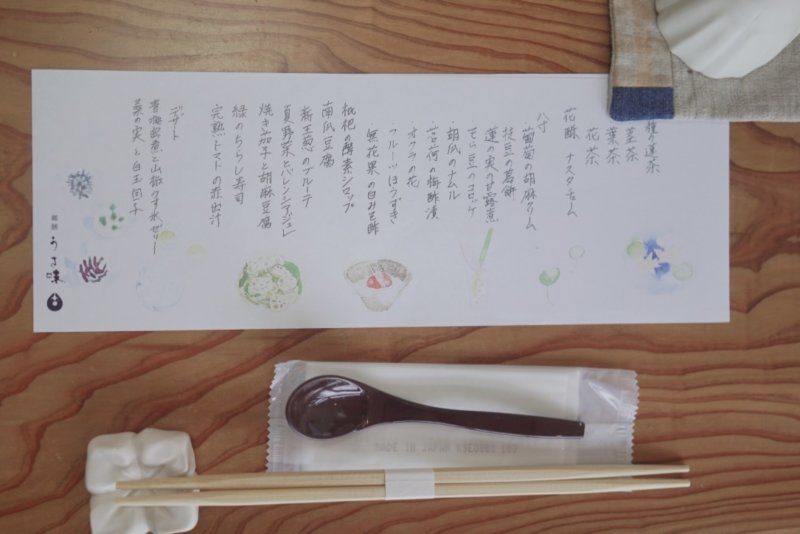 蓮茶
茎茶
葉茶
花茶
花酥 ナスタチューム
八寸
葡萄の胡麻クリーム
枝豆の葛餅
蓮の実の甘露煮
そら豆のコロッケ
胡瓜のナムル
茗荷の梅酢漬
オクラの花
フルーツほうずき
無花果の白みそ酢
枇杷の酵素シロップ
南瓜豆腐
新玉葱のブルーテ
夏野菜とバレンシアジュレ
焼き茄子と胡麻豆腐
緑のちらし寿司
完熟トマトの赤出汁
デザート
青梅蜜煮と山椒のすい水ゼリー
桑の実と白玉団子
うさ味
MADE IN JAPAN